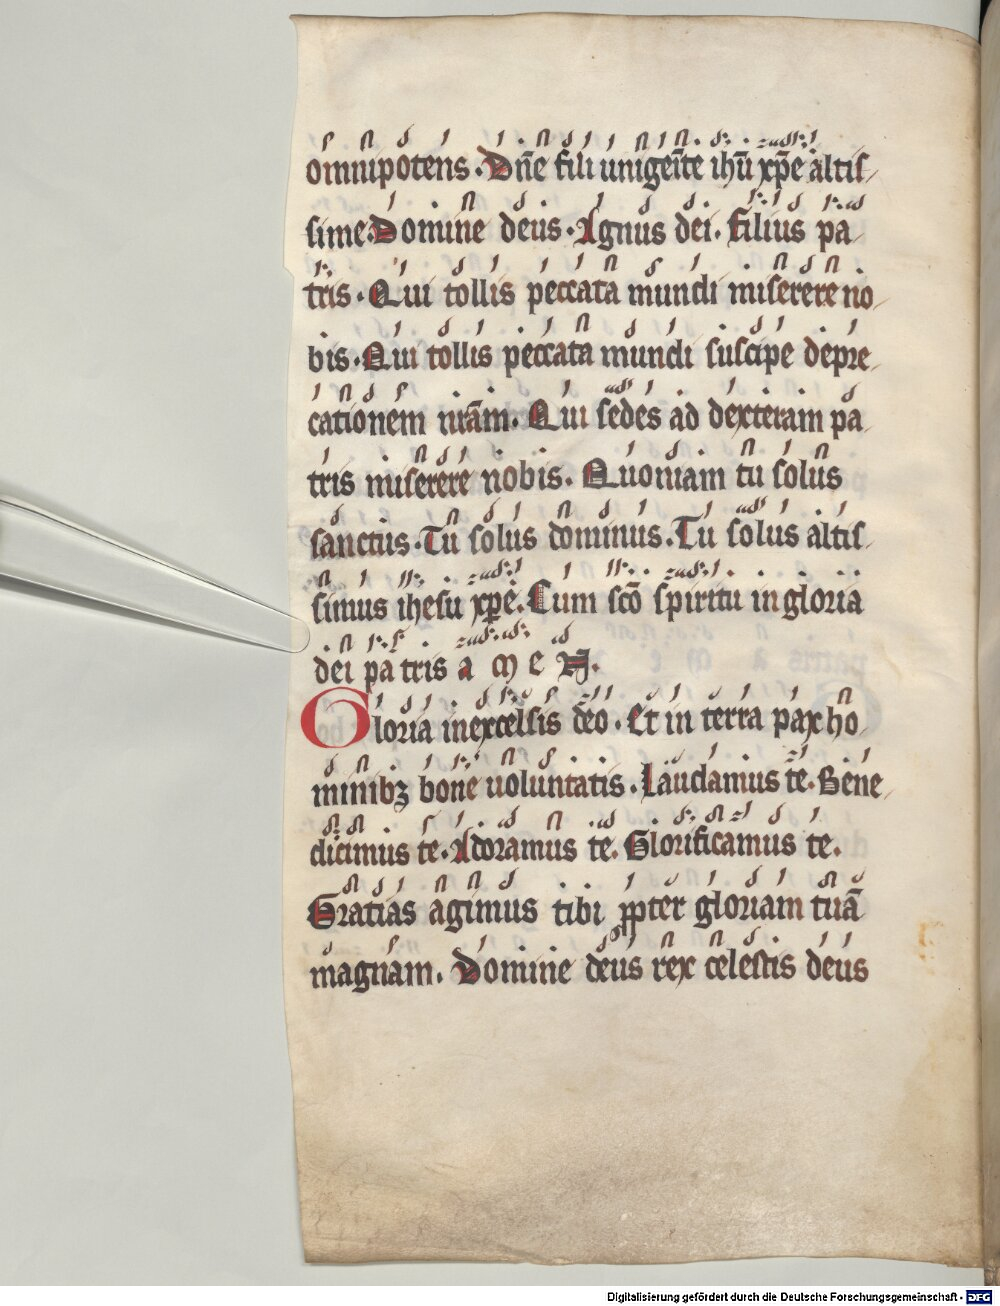 omnipotens. Dn̄e fili unigenīte ihū xp̄e altis/
sime. Domine deus. Agnus dei. filius pa/
tris. Qui tollis peccata mundi miserere no/
bis. Qui tollis peccata mundi suscipe depre/
cationem nrām. Qui sedes ad dexteram pa/
tris miserere nobis. Quoniam tu solus
sanctus. Tu solus dominus. Tu solus altis/
simus ihesu xp̄e. Cum scō spiritu in gloria
dei patris a m e N.
Gloria in excelsis deo. Et in terra pax ho/
minibꝫ bone uoluntatis. Laudamus te. Bene/
dicimus te. Adoramus te. Glorificamus te.
Gratias agimus tibi ꝓpter gloriam tuā
magnam. Domine deus rex celestis deus
Digitalisierung gefördert durch die Deutsche Forschungsgemeinschaft - DFG